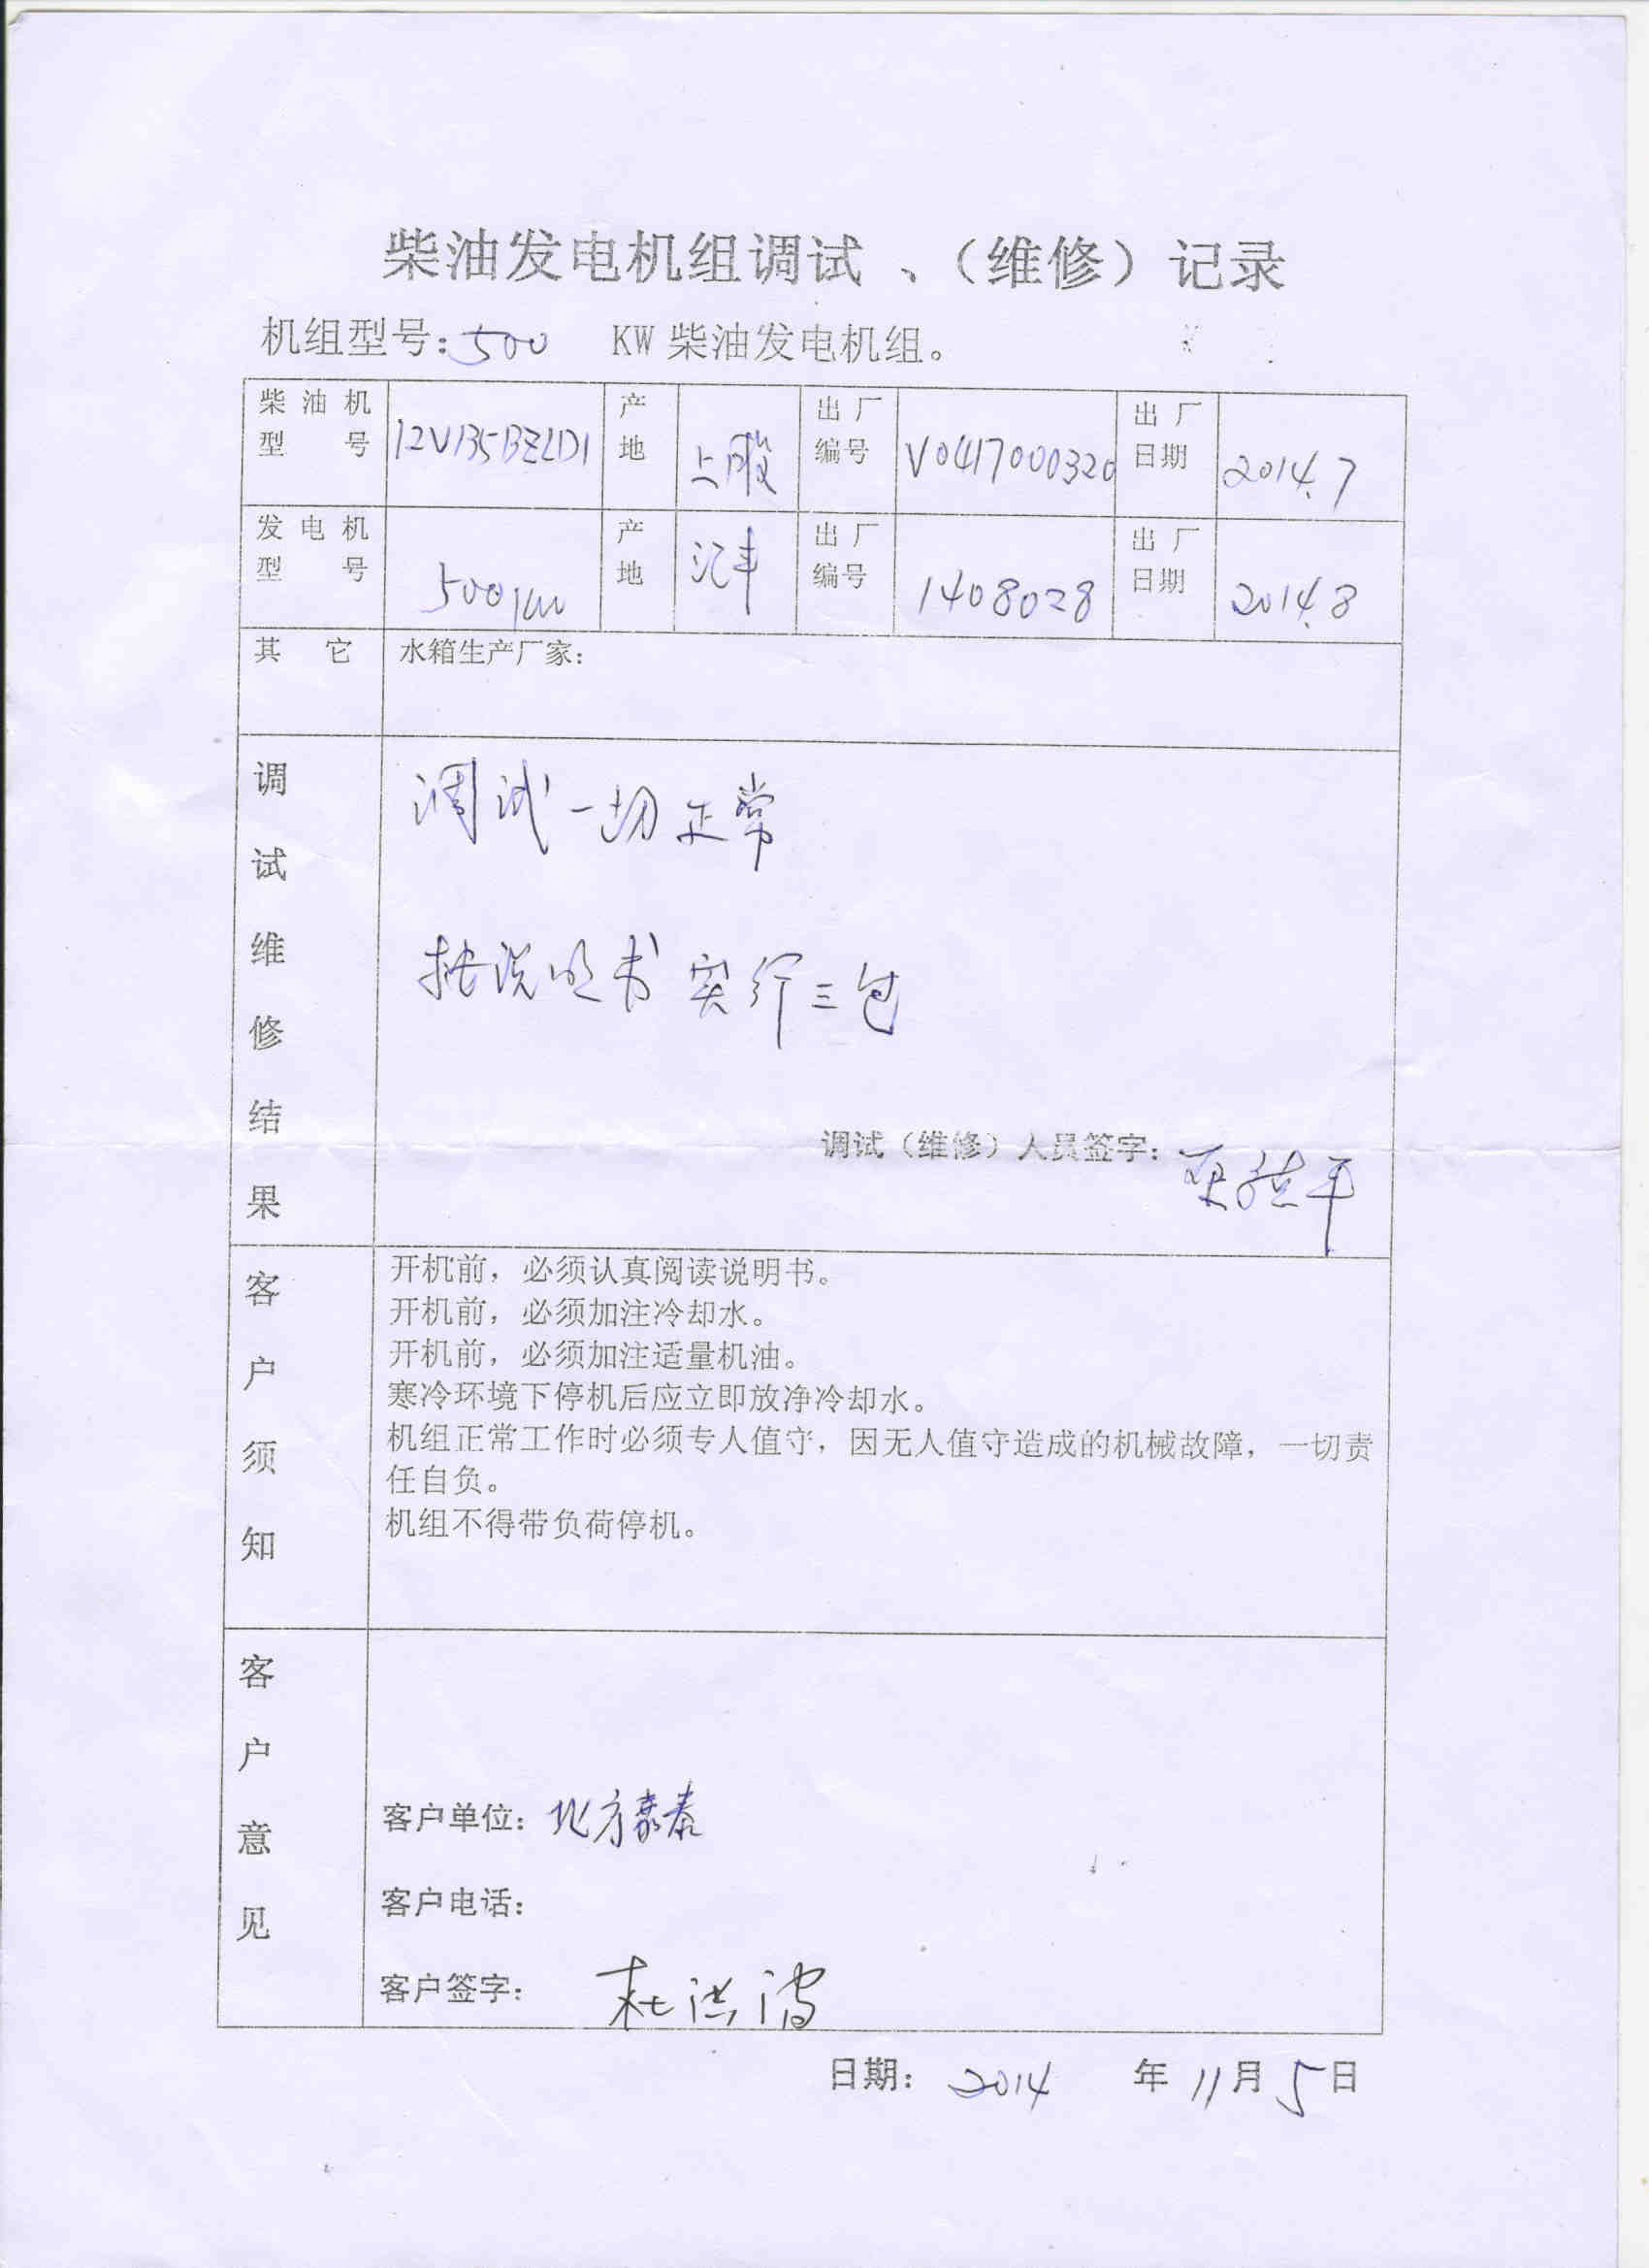 柴油发电机组调试 、（维修）记录
机组型号: 500 KW 柴油发电机组。
柴油机型号 12V135BZLD1 产地 上股 出厂编号 V0417000320 出厂日期 2014.7
发电机型号 500KW 产地 汇丰 出厂编号 1408028 出厂日期 2014.8
其它 水箱生产厂家:
调试维修结果
调试一切正常
按说明书实行三包
调试（维修）人员签字:
客户须知
开机前，必须认真阅读说明书。
开机前，必须加注冷却水。
开机前，必须加注适量机油。
寒冷环境下停机后应立即放净冷却水。
机组正常工作时必须专人值守，因无人值守造成的机械故障，一切责
任自负。
机组不得带负荷停机。
客户意见
客户单位: 北方嘉泰
客户电话:
客户签字: 杜洪涛
日期: 2014 年 11 月 5 日